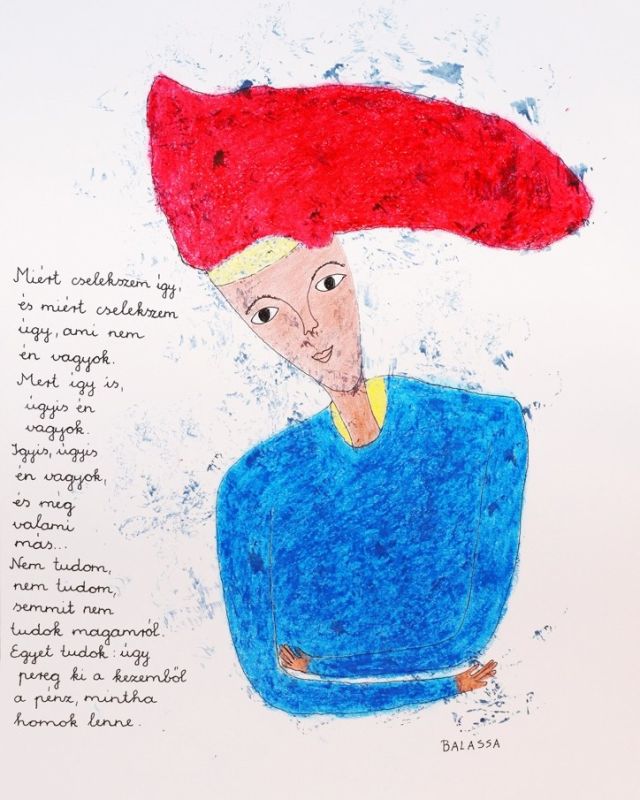 Miért cselekszem így,
és miért cselekszem
úgy, ami nem
én vagyok.
Mert így is,
úgyis én
vagyok.
Igyis, úgyis
én vagyok,
és még
valami
más...
Nem tudom,
nem tudom,
semmit nem
tudok magamról.
Egyet tudok: úgy
pereg ki a kezemből
a pénz, mintha
homok lenne.
BALASSA